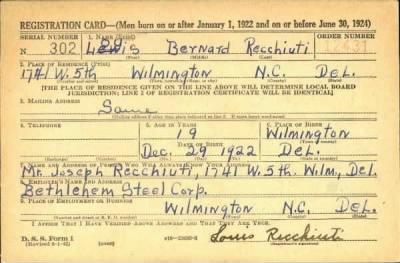 REGISTRATION CARD—(Men born on or after January 1, 1922 and on or before June 30, 1924)
SERIAL NUMBER 1. NAME (Print) ORDER NUMBER
N 302 Lewis Bernard Recchiuti 12431
(First) (Middle) (Last)
2. PLACE OF RESIDENCE (Print)
1741 W. 5th Wilmington N.C. DeL.
[THE PLACE OF RESIDENCE GIVEN ON THE LINE ABOVE WILL DETERMINE LOCAL BOARD
JURISDICTION; LINE 2 OF REGISTRATION CERTIFICATE WILL BE IDENTICAL]
3. MAILING ADDRESS
Same
4. TELEPHONE 5. AGE IN YEARS 6. PLACE OF BIRTH
19 Wilmington
DATE OF BIRTH
Dec. 29 1922 Del.
7. NAME AND ADDRESS OF PERSON WHO WILL ALWAYS KNOW YOUR ADDRESS
Mr. Joseph Recchiuti, 1741 W. 5th. Wilm, Del.
8. EMPLOYER'S NAME AND ADDRESS
Bethlehem Steel Corp.
9. PLACE OF EMPLOYMENT OR BUSINESS
Wilmington N.C. DeL.
I AFFIRM THAT I HAVE VERIFIED ABOVE ANSWERS AND THAT THEY ARE TRUE.
D. S. S. Form 1
Louis Recchiuti